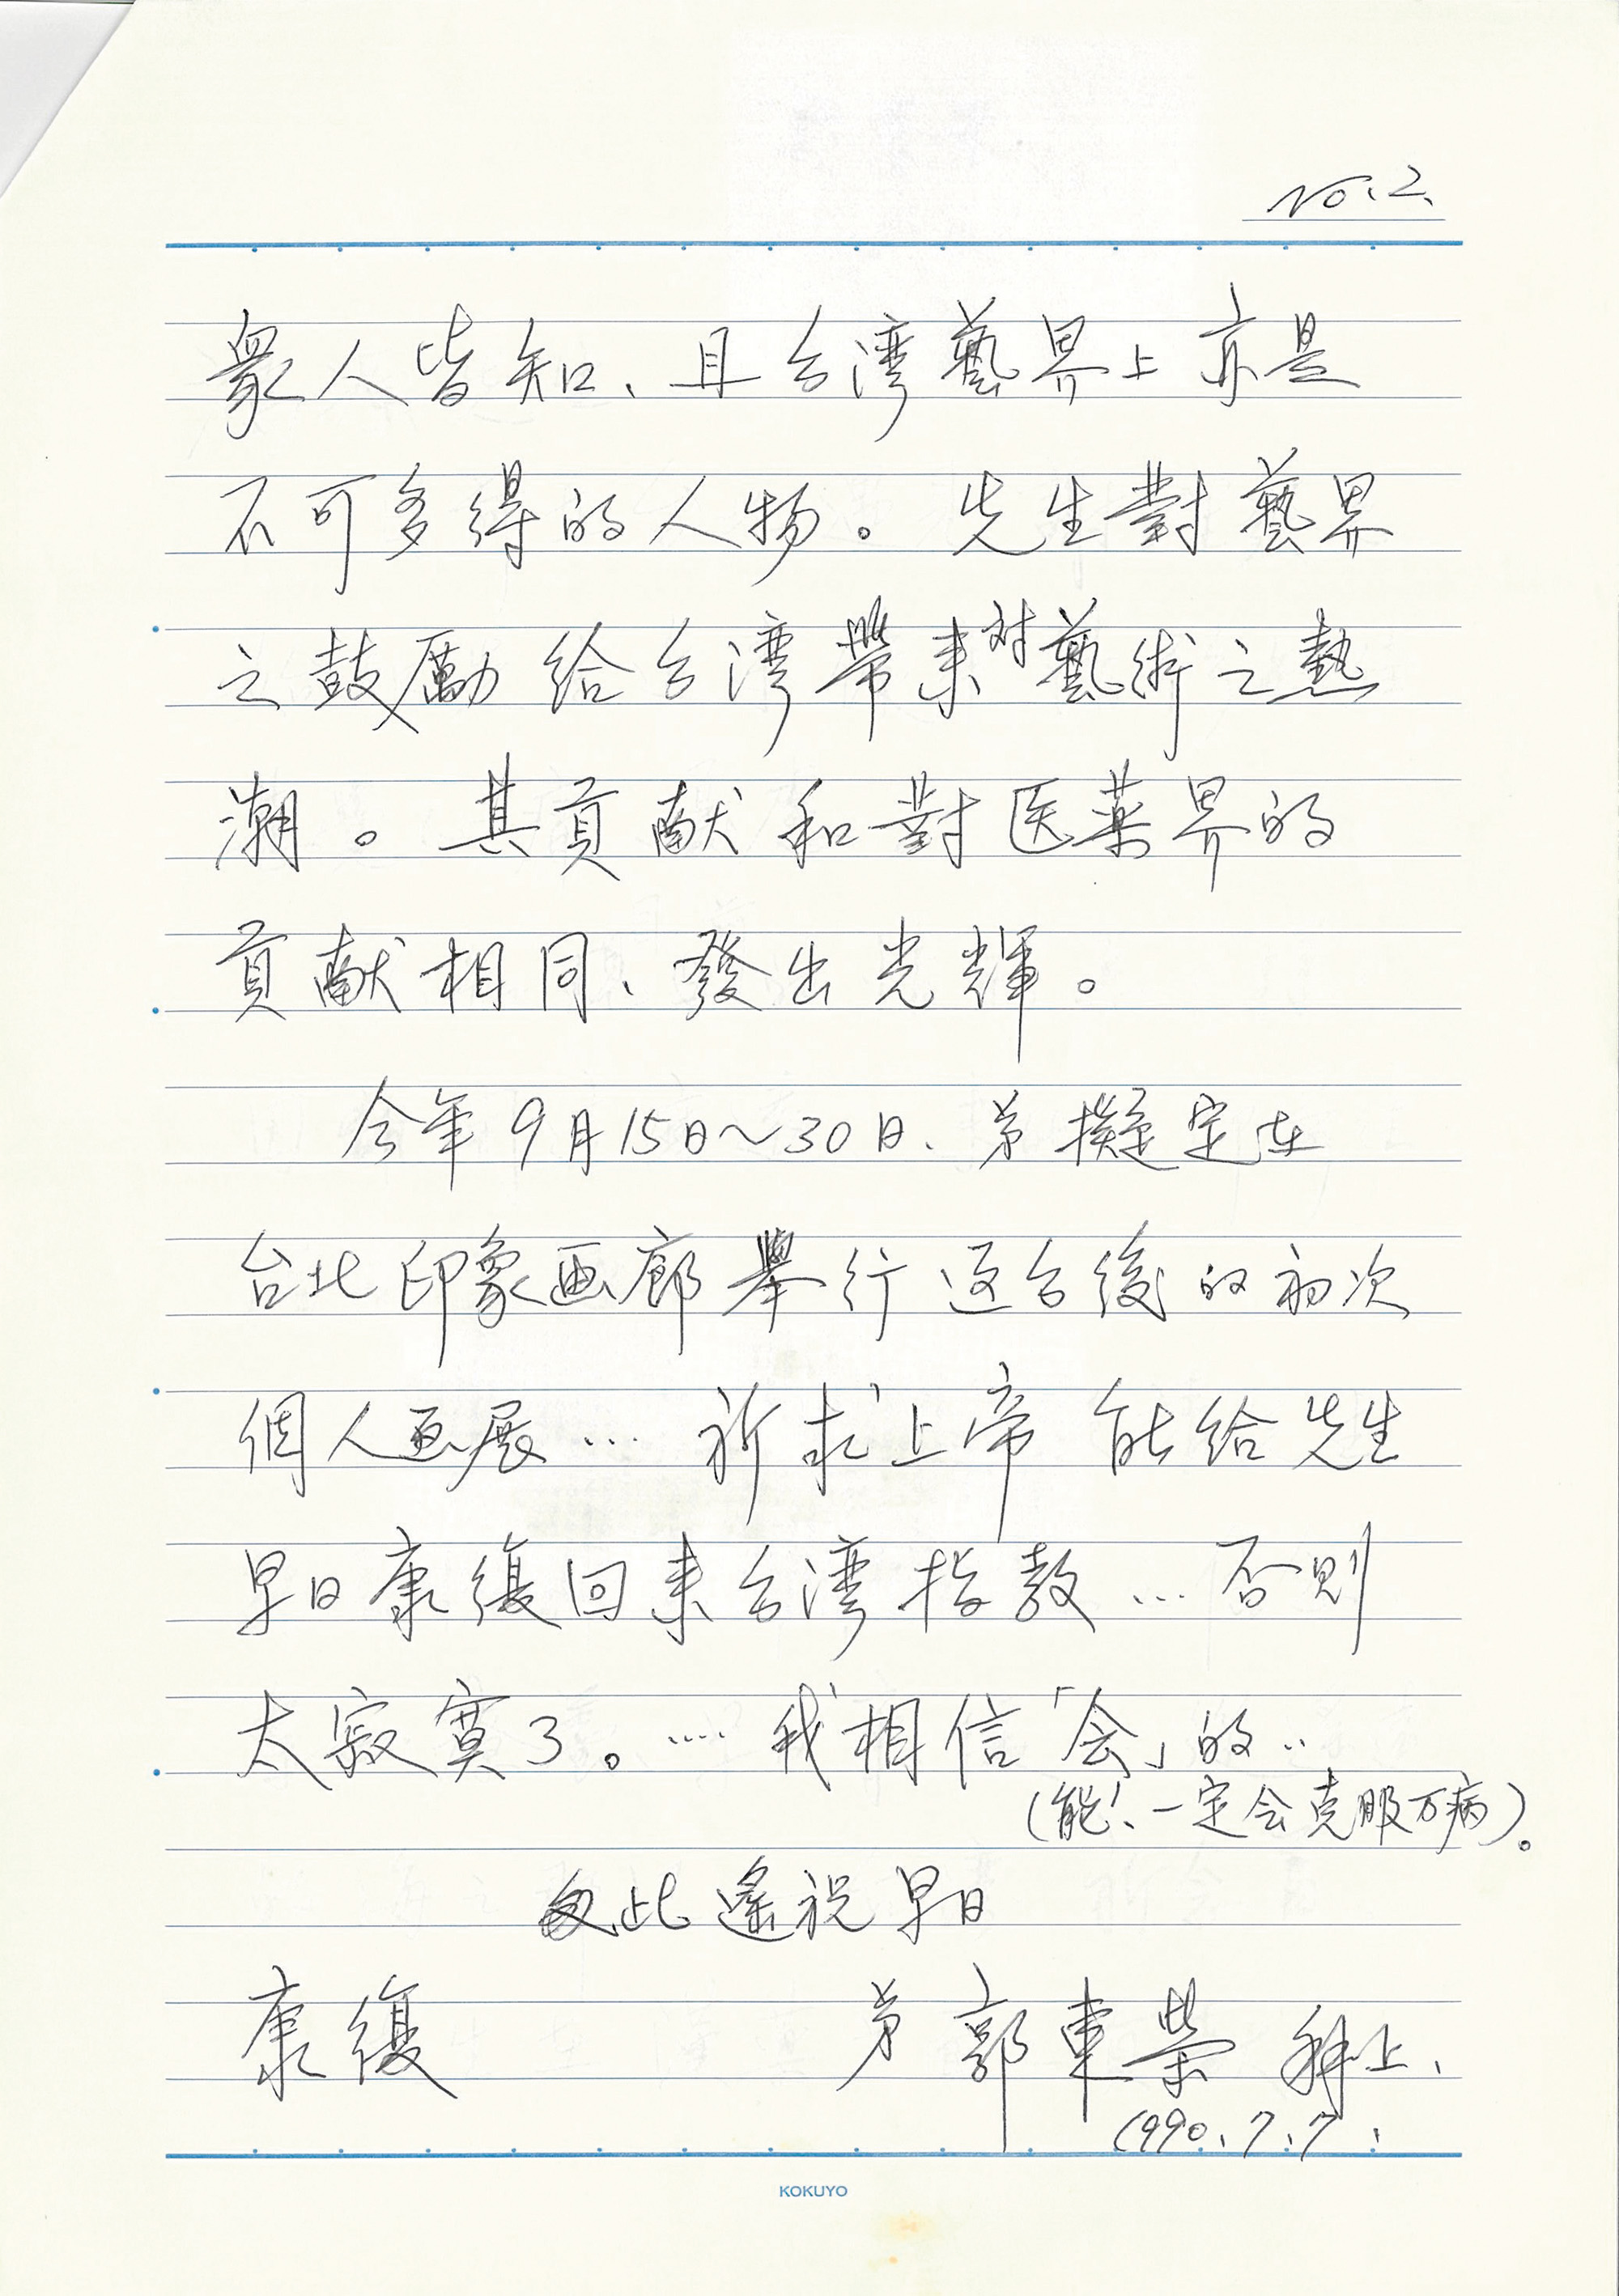 No. 2.
衆人皆知、且台湾藝界上亦是
不可多得的人物。先生對藝界
之鼓勵給台湾帶来对藝術之熱
潮。其貢献和對医薬界的
貢献相同、發出光輝。
今年9月15日~30日、弟擬定在
台北印象画廊舉行返台後的初次
個人画展… 祈求上帝能給先生
早日康復回来台湾指教…否則
太寂寞了。…. 我相信「会」的..
(能!、一定会克服万病)。
在此遙祝早日
康復 弟郭東榮 拜上、
1990.7.7.
KOKUYO